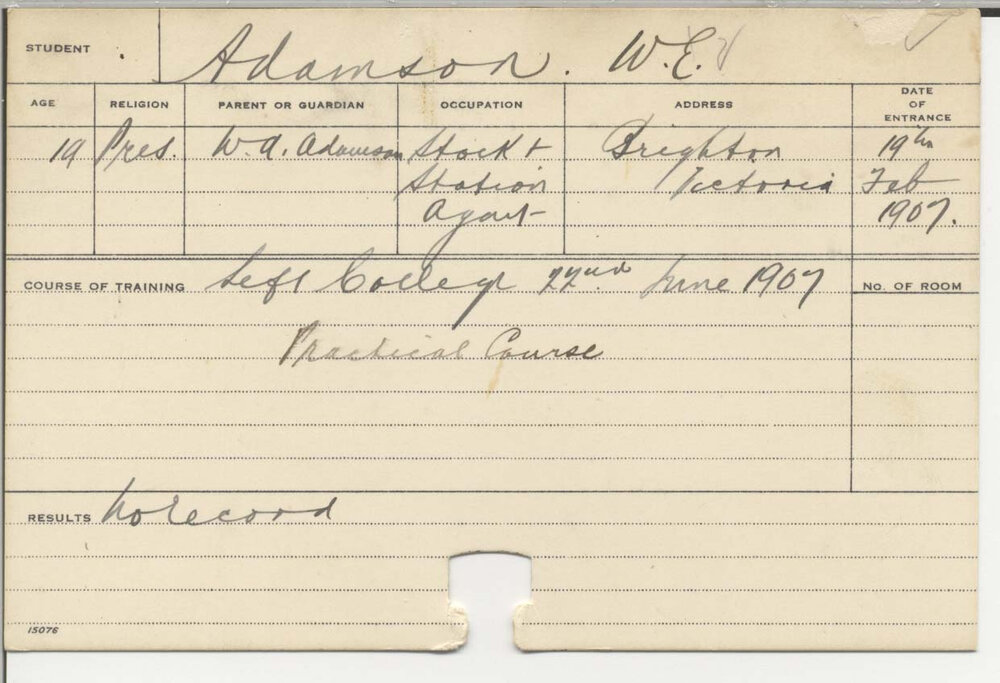 STUDENT Adamson. W.E.
AGE RELIGION PARENT OR GUARDIAN OCCUPATION ADDRESS DATE OF ENTRANCE
19 Pres. W.A. Adamson Stock + Brighton 19th
Station Victoria Feb
Agent 1907.
COURSE OF TRAINING Left College 22nd June 1907 No. OF ROOM
Practical Course
RESULTS No record
15076